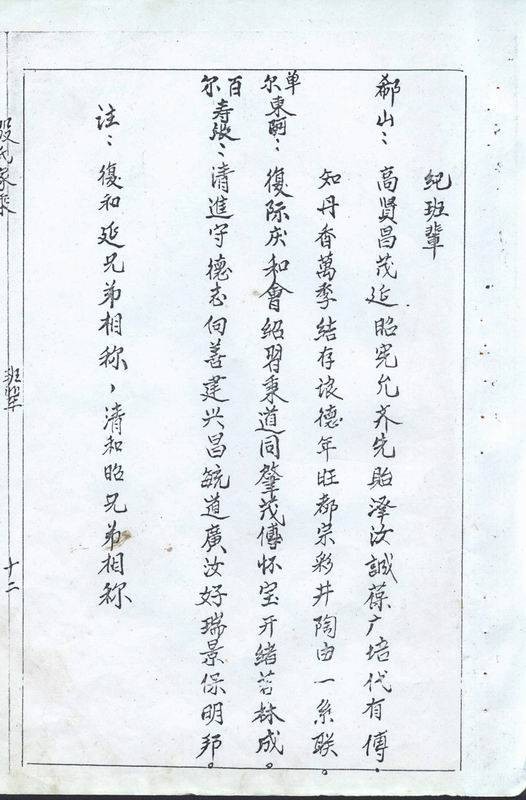 纪班輩
郗山：高賢昌茂延昭宪允齐先贻澤汝誠葆广培代有傅．
知丹香萬季结存德年旺都宗彩井陶由一系联。
单尔東嗣：復际庆和會绍習秉道同肇茂傅怀宝开绪若林成。
百尔寿张：清進守德志向善建兴昌毓道廣汝好瑞景保明邦。
註：復和延兄弟相称，清和昭兄弟相称
段氏家乘
班輩
十二